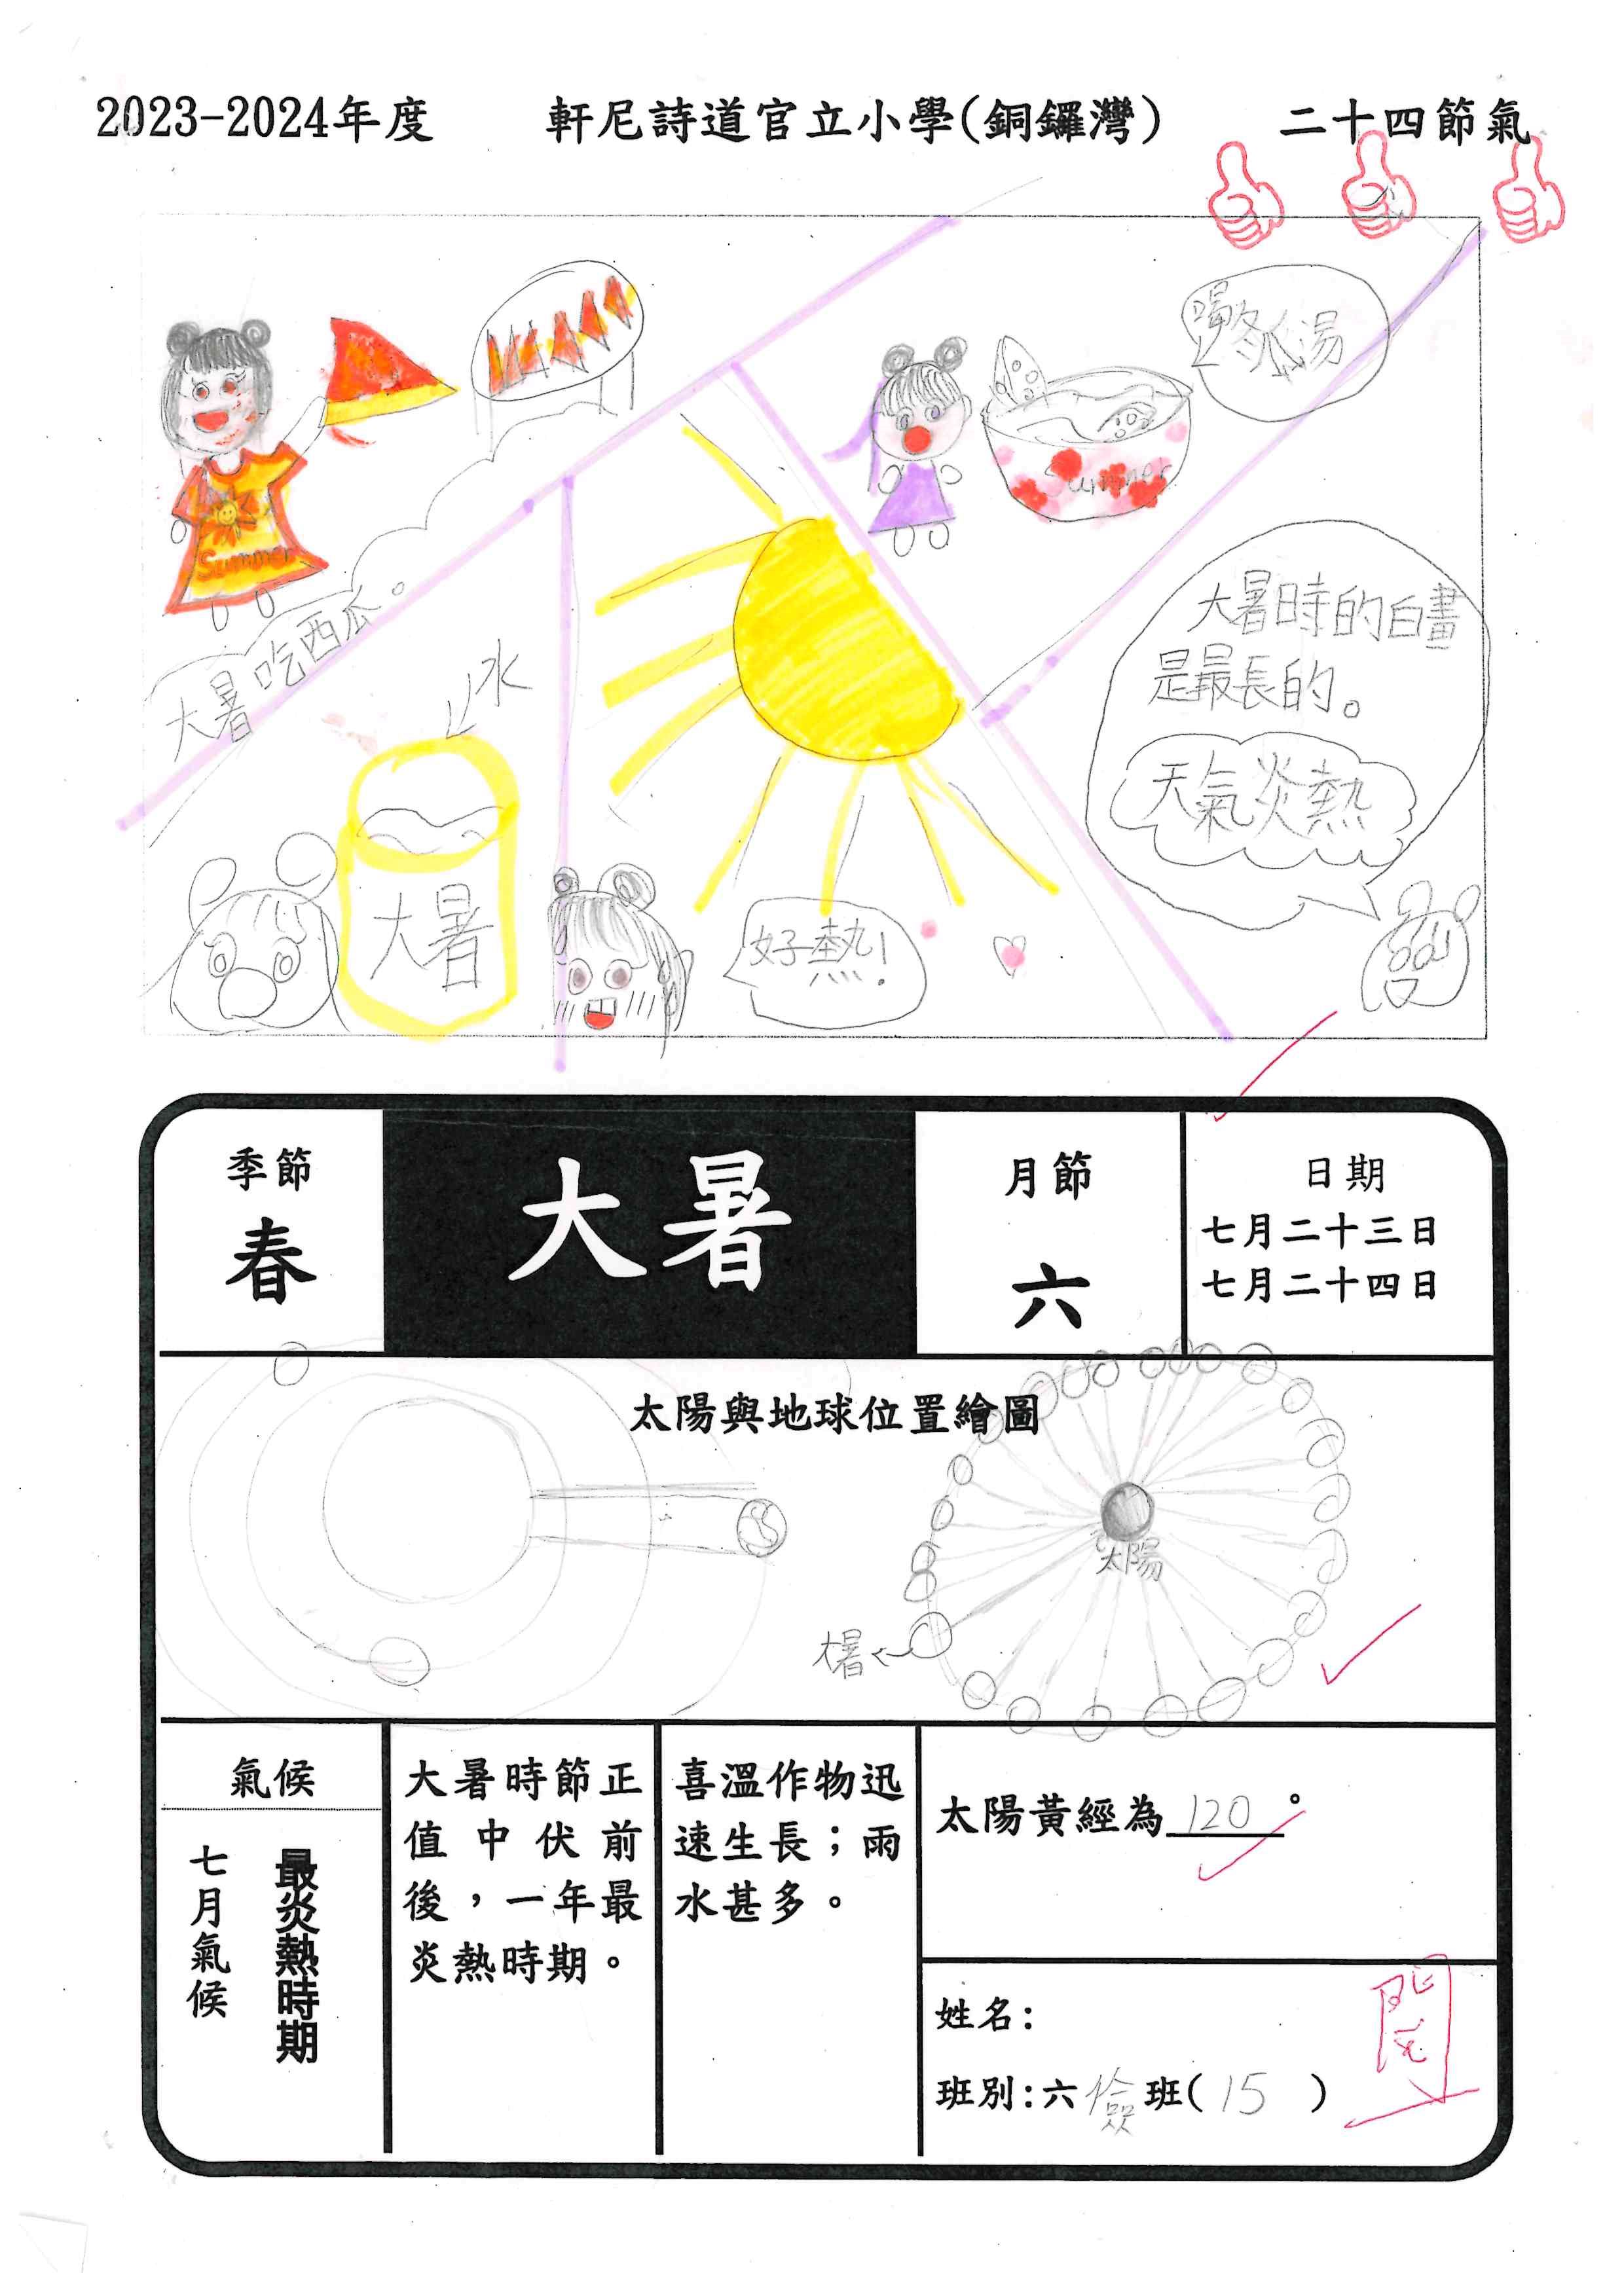 2023-2024年度 軒尼詩道官立小學(銅鑼灣) 二十四節氣
喝冬瓜湯
Summer
Summer
大暑吃西瓜。
水
大暑
好熱!
大暑時的白晝
是最長的。
天氣炎熱
季節
春
大暑
月節
六
日期
七月二十三日
七月二十四日
太陽與地球位置繪圖
太陽
大暑
氣候
七月氣候
最炎熱時期
大暑時節正
值中伏前
後，一年最
炎熱時期。
喜溫作物迅
速生長；雨
水甚多。
太陽黃經為 120 °
姓名:
班別:六儉班( 15 )
閱